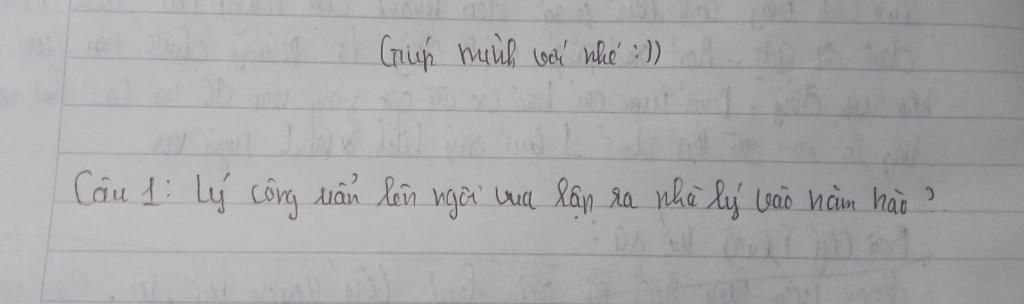 Giúp mình với nhé :))
Câu 1: Lý công uẩn lên ngôi vua lập ra nhà lý vào năm nào?